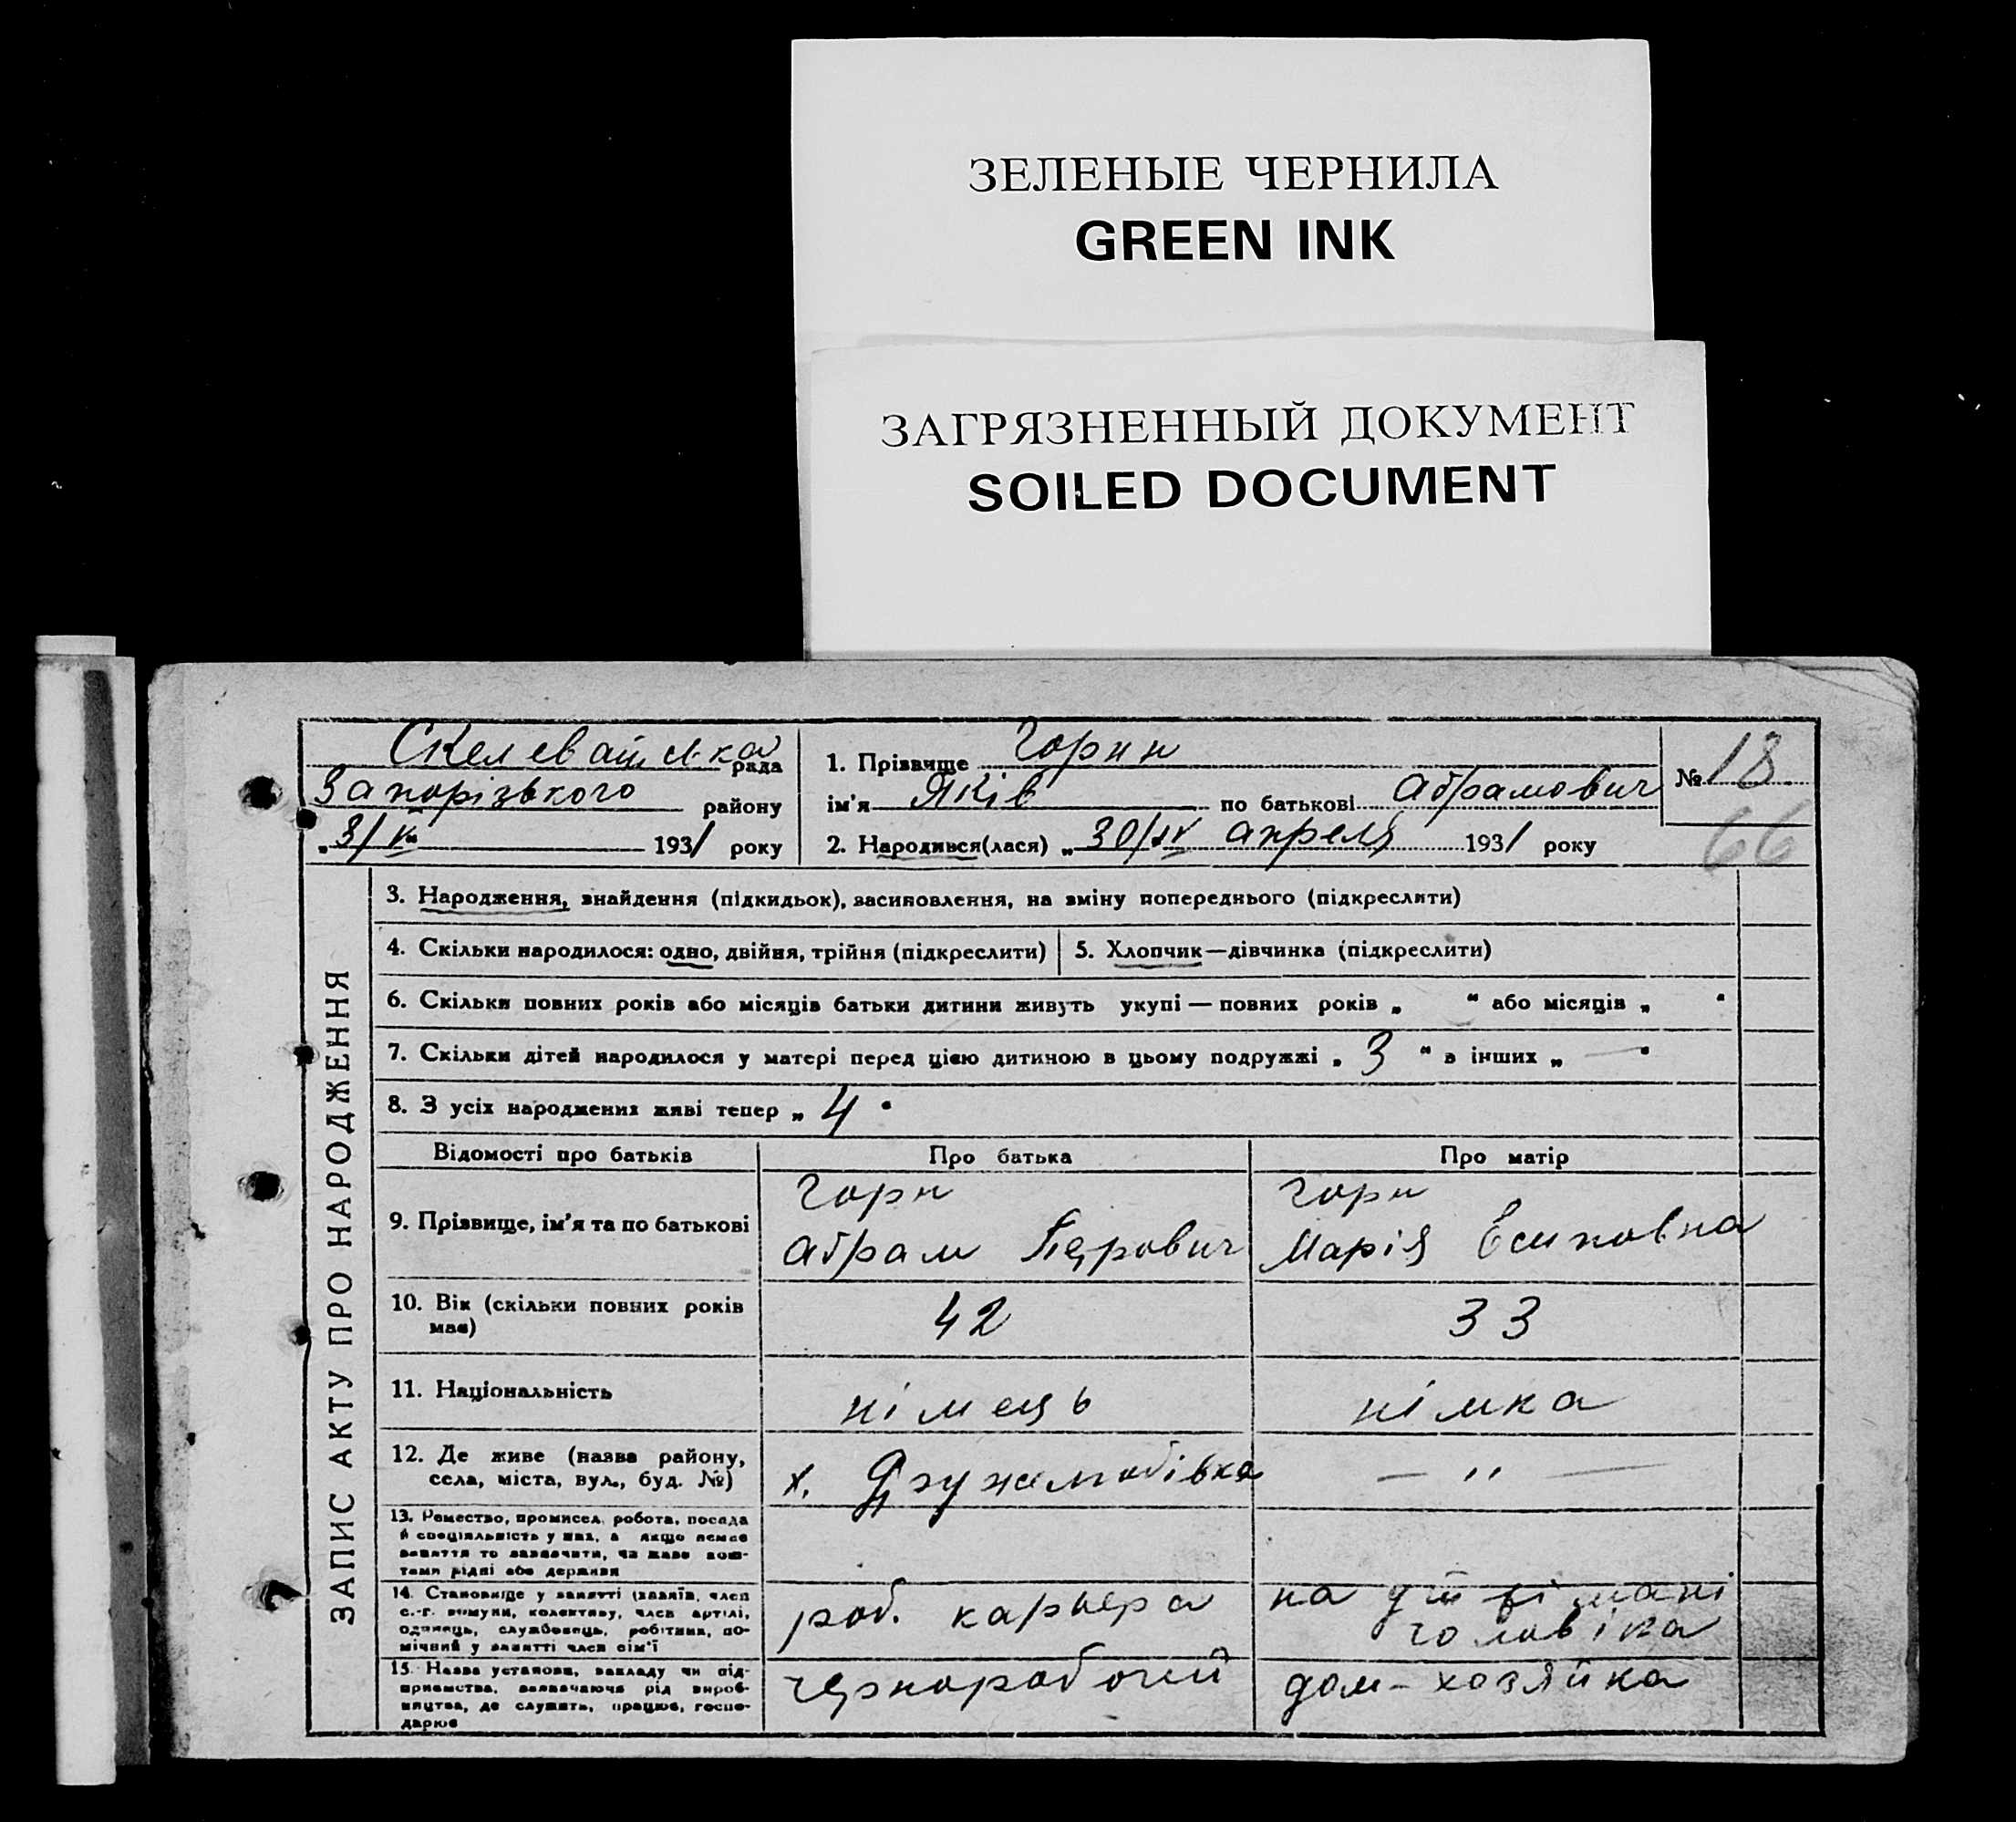 ЗЕЛЕНЫЕ ЧЕРНИЛА
GREEN INK
ЗАГРЯЗНЕННЫЙ ДОКУМЕНТ
SOILED DOCUMENT
рада
Запорізького району
„3/V“ 1931 року
1. Прізвище Горнн
ім'я Яків по батькові Абрамович
2. Народився(лася) „30/IV апреля 1931 року
№ 18
66
ЗАПИС АКТУ ПРО НАРОДЖЕННЯ
3. Народження, знайдення (підкидьок), засиновлення, на зміну попереднього (підкреслити)
4. Скільки народилося: одно, двійня, трійня (підкреслити)
5. Хлопчик—дівчинка (підкреслити)
6. Скільки повних років або місяців батьки дитини живуть укупі — повних років „ “ або місяців „ “
7. Скільки дітей народилося у матері перед цією дитиною в цьому подружжі „ 3 “ в інших „ — “
8. З усіх народжених живі тепер „ 4 “
Відомості про батьків Про батька Про матір
9. Прізвище, ім'я та по батькові
Горн
Абрам Петрович
Горн
Марія Есиповна
10. Вік (скільки повних років має)
42
33
11. Національність
німець
німка
12. Де живе (назва району,
села, міста, вул., буд. №)
х.
— " —
13. Ремество, промисел, робота, посада
й спеціяльність у них, а якщо немає
заняття то зазначити, чи живе кош-
тами рідні або держави
14. Становище у занятті (хазяїн, член
с.-г. комуни, колективу, член артілі,
одинець, службовець, робітник, по-
мічний у занятті член сім'ї
роб. карьера
на
чоловіка
15. Назва установи, закладу чи під-
приємства, зазначаючи рід вироб-
ництва, де служить, працює, госпо-
дарює
чернорабочий
дом-хозяйка